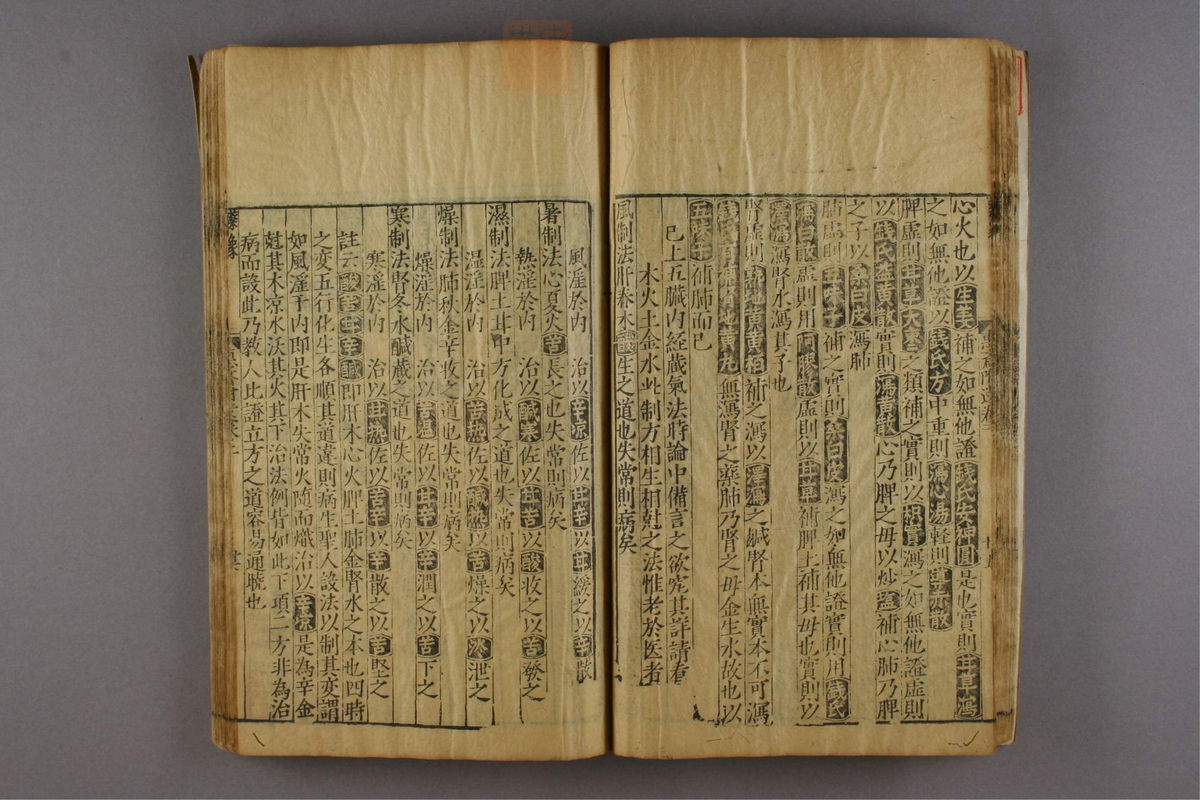 心火也以生姜補之如無他證錢氏安神圓是也實則甘草瀉
之如無他證以錢氏方中重則瀉心湯輕則導赤散
脾虛則甘草大棗之類補之實則以枳實瀉之如無他證虛則
以錢氏益黄散實則瀉黄散心乃脾之母以炒塩補心肺乃脾
之子以桑白皮瀉肺
肺虛則五味子補之實則桑白皮瀉之如無他證實則用錢氏
瀉白散虛則用阿膠散虛則以甘草補脾土補其母也實則以
澤瀉瀉腎水瀉其子也
腎虛則熟地黄黄柏補之瀉以澤瀉之鹹腎本無實本不可瀉
錢氏有補腎地黄丸無瀉腎之藥肺乃腎之母金生水故也以
五味子補肺而已
已上五臟内經藏氣法時論中備言之欲究其詳請看
木火土金水此制方相生相尅之法惟老於医者
風制法肝春木酸生之道也失常則病矣
風淫於内　治以辛凉佐以甘辛以甘緩之以辛散
暑制法心夏火苦長之也失常則病矣
熱淫於内　治以鹹寒佐以甘苦以酸收之以苦發之
濕制法脾土甘中方化成之道也失常則病矣
濕淫於内　治以苦熱佐以鹹淡以苦燥之以淡泄之
燥制法肺秋金辛收之道也失常則病矣
燥淫於内　治以苦温佐以甘辛以辛潤之以苦下之
寒制法腎冬水鹹藏之道也失常則病矣
寒淫於内　治以甘熱佐以苦辛以辛散之以苦堅之
註云酸苦甘辛鹹即肝木心火脾土肺金腎水之本也四時
之變五行化生各順其道違則病生聖人設法以制其變謂
如風淫于内即是肝木失常火随而熾治以辛凉是為辛金
尅其木凉水沃其火其下治法例皆如此下項二方非為治
病而設此乃教人比證立方之道容易通曉也